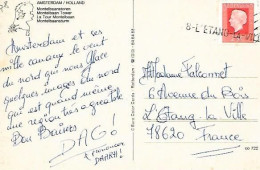 AMSTERDAM / HOLLAND
Montelbaanstoren
Montelbaan Tower
La Tour Montelbaan
Montelbaansturm
8-L'ETANG-LA-VILLE
Amsterdam et ses
mille canaux, le vent
du nord qui nous glace
quelques images du nord
qui est quand même une
région très agréable
Bon Baisers
DAG!
à prononcer
Madame Falconnet
6 Avenue du Bois
L'Etang la Ville
78620
France